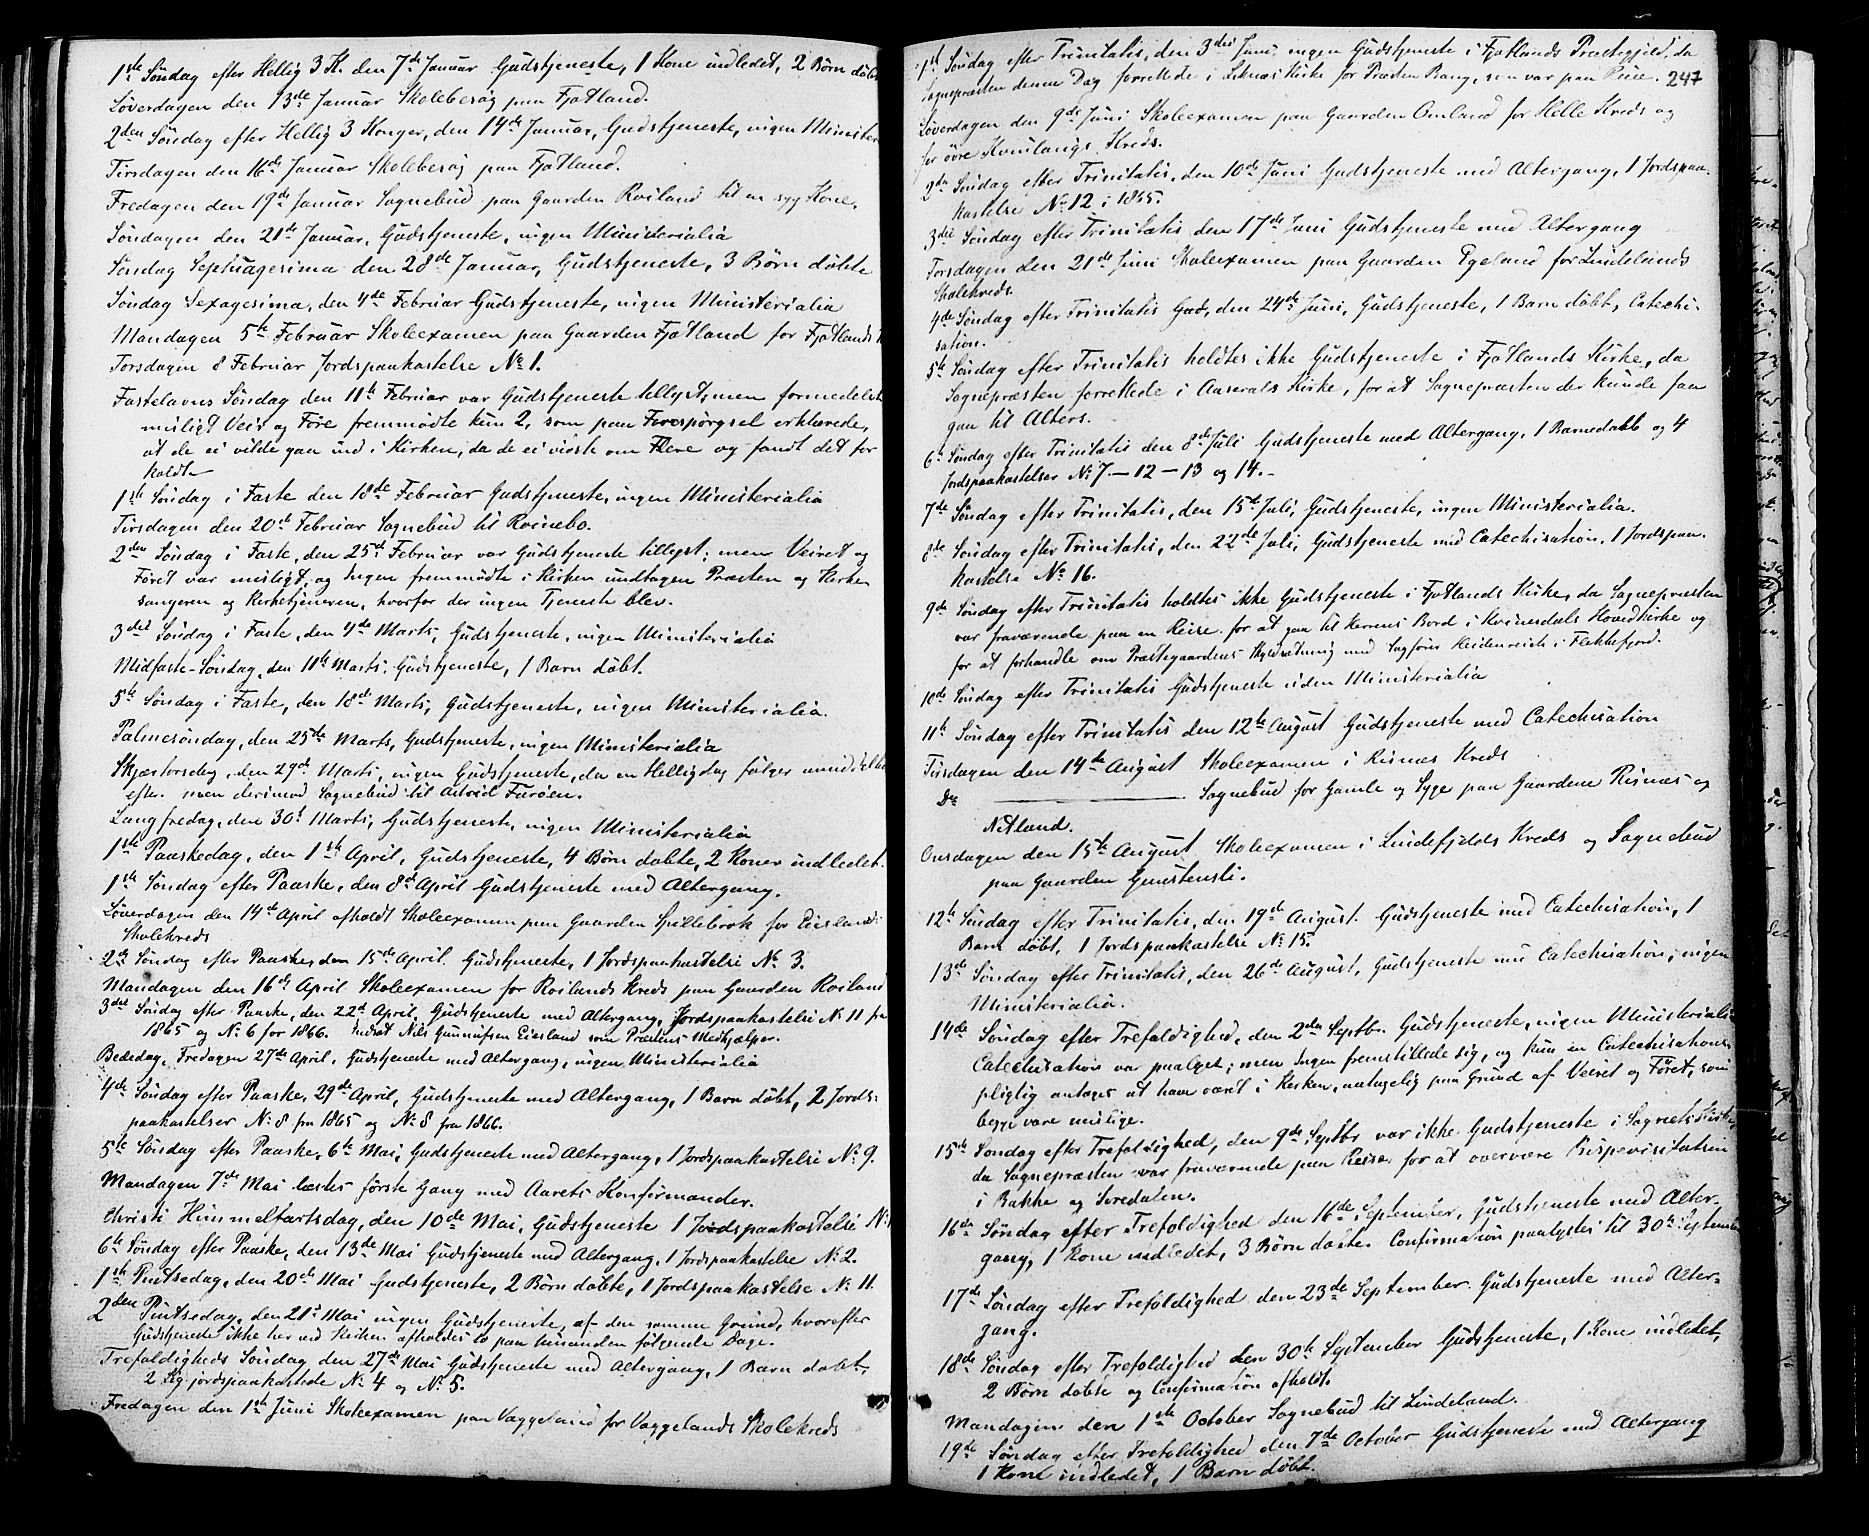 1ste Søndag efter Hellig 3 K. den 7de Januar Gudstjeneste, 1 Kone indledet, 2 Børn døbte
Løverdagen den 13de Januar Skolebesøg paa Fjotland.
2den Søndag efter Hellig 3 Konger, den 14de Januar, Gudstjeneste, ingen Minister
Tirsdagen den 16de Januar Skolebesøg paa Fjotland.
Fredagen den 19de Januar Sognebud paa Gaarden Roiland til en syg Kone.
Søndagen den 21de Januar, Gudstjeneste, ingen Ministerialia
Søndag Septuagesima den 28de Januar, Gudstjeneste, 3 Børn døbte
Søndag Sexagesima, den 4de Februar Gudstjeneste, ingen Ministerialia
Mandagen 5te Februar Skoleexamen paa Gaarden Fjotland for Fjotlands
Torsdagen 8 Februar Jordspaakastelse No 1.
Fastelavns Søndag den 11te Februar var Gudstjeneste tillyst, men formedelst
misligt Veir og Føre fremmødte kun 2, som paa Forespørgsel erklærede,
at de ei vilde gaa ind i Kirken, da de ei vidste om Flere og fandt det for
koldt
1ste Søndag i Faste den 18de Februar Gudstjeneste, ingen Ministerialia
Tirsdagen den 20de Februar Sognebud til Roinebo.
2den Søndag i Faste, den 25de Februar var Gudstjeneste tillyst; men Veiret og
Føret var misligt, og Ingen fremmødte i Kirken undtagen Præsten og Kirke-
sangeren og Kirketjeneren, hvorfor der ingen Tjeneste blev.
3die Søndag i Faste, den 4de Marts, Gudstjeneste, ingen Ministerialia
Midfaste-Søndag, den 11te Marts, Gudstjeneste, 1 Barn døbt.
5te Søndag i Faste, den 18de Marts, Gudstjeneste, ingen Ministerialia.
Palmesøndag, den 25de Marts, Gudstjeneste, ingen Ministerialia
Skjærtorsdag, den 29de Marts, ingen Gudstjeneste, da en Helligdag følger umiddelbar
efter. men derimod Sognebud til Astrid Furøen.
Langfredag, den 30te Marts, Gudstjeneste, ingen Ministerialia
1ste Paaskedag, den 1ste April, Gudstjeneste, 4 Børn døbte, 2 Koner indledet.
1ste Søndag efter Paaske, den 8de April Gudstjeneste med Altergang.
Løverdagen den 14de April afholdt Skoleexamen paa Gaarden Spillebrok for Eieslands
Skolekreds
2den Søndag efter Paaske, den 15de April. Gudstjeneste, 1 Jordspaakastelse No 3.
Mandagen den 16de April Skoleexamen for Roilands Kreds paa Gaarden Roiland
3die Søndag efter Paaske, den 22de April, Gudstjeneste med Altergang, Jordspaakastelse No 11 fra
1865 og No 6 for 1866. Indsat Nils Gunnufsen Eiesland som Præstens Medhjælper.
Bededag, Fredagen 27de April, Gudstjeneste med Altergang, ingen Ministerialia
4de Søndag efter Paaske, 29de April, Gudstjeneste med Altergang, 1 Barn døbt, 2 Jords-
paakastelser No 8 fra 1865 og No 8 fra 1866.
5te Søndag efter Paaske, 6te Mai, Gudstjeneste med Altergang, 1 Jordspaakastelse No 9.
Mandagen 7de Mai læstes første Gang med Aarets Konfirmander.
Christi Himmelfartsdag, den 10de Mai, Gudstjeneste 1 Jordspaakastelse No
6te Søndag efter Paaske, den 13de Mai Gudstjeneste med Altergang, 1 Jordspaakastelse No 2.
1ste Pintsedag, den 20de Mai Gudstjeneste, 2 Børn døbte, 1 Jordspaakastelse No 11.
2den Pintsedag, den 21de Mai ingen Gudstjeneste, af den samme Grund, hvorefter
Gudstjeneste ikke her ved Kirken afholdes to paa hinanden følgende Dage.
Trefoldigheds Søndag den 27de Mai Gudstjeneste med Altergang, 1 Barn døbt,
2 Lig jordspaakastede No 4 og No 5.
Fredagen den 1ste Juni Skoleexamen paa Vaggeland for Vaggelands Skolekreds
247
1ste Søndag efter Trinitatis, den 3die Juni, ingen Gudstjeneste i Fjotlands Præstegjeld, da
Sognepræsten denne Dag forrettede i Kirke for Præsten Bang, som var paa Reise.
Løverdagen den 9de Juni Skoleexamen paa Gaarden Omland for Helle Kreds og
for øvre Kvinlangs Kreds.
2den Søndag efter Trinitatis, den 10de Juni Gudstjeneste med Altergang, 1 Jordspaa-
kastelse No 12 i 1865.
3die Søndag efter Trinitatis den 17de Juni Gudstjeneste med Altergang
Torsdagen den 21de Juni Skoleexamen paa Gaarden Egeland for Lindelands
Skolekreds.
4de Søndag efter Trinitatis, den 24de Juni, Gudstjeneste, 1 Barn døbt, Catechi-
sation.
5te Søndag efter Trinitatis holdtes ikke Gudstjeneste i Fjotlands Kirke, da
Sognepræsten forrettede i Aaserals Kirke, for at Sognepræsten der kunde faa
gaa til Alters.
6te Søndag efter Trinitatis den 8de Juli Gudstjeneste med Altergang, 1 Barnedaab og 4
Jordspaakastelser No 7 – 12 – 13 og 14. –
7de Søndag efter Trinitatis, den 15de Juli, Gudstjeneste, ingen Ministerialia.
8de Søndag efter Trinitatis, den 22de Juli, Gudstjeneste med Catechisation, 1 Jordspaa-
kastelse No 16.
9de Søndag efter Trinitatis holdtes ikke Gudstjeneste i Fjotlands Kirke, da Sognepræsten
var fraværende paa en Reise for at gaa til Herrens Bord i Kvinesdals Hovedkirke og
for at forhandle om Præstegaardens Skyldsætning med Sagfører Heidenreich i Flekkefjord.
10de Søndag efter Trinitatis Gudstjeneste uden Ministerialia
11te Søndag efter Trinitatis den 12te August Gudstjeneste med Catechisation
Tirsdagen den 14de August Skoleexamen i Risnes Kreds
Do ———— Sognebud for Gamle og Syge paa Gaardene Risnes og
Netland.
Onsdagen den 15te August Skoleexamen i Lindefjelds Kreds og Sognebud
paa Gaarden Gunstensli.
12te Søndag efter Trinitatis, den 19de August. Gudstjeneste med Catechisation, 1
Barn døbt, 1 Jordspaakastelse No 15.
13de Søndag efter Trinitatis, den 26de August, Gudstjeneste med Catechisation, ingen
Ministerialia.
14de Søndag efter Trefoldighed, den 2den Septbr. Gudstjeneste, ingen Ministerialia
Catechisation var paalyst; men Ingen fremstillede sig, og kun en Catechisations-
pligtig antages at have været i Kirken, antagelig paa Grund af Veiret og Føret, som
begge vare mislige.
15de Søndag efter Trefoldighed, den 9de Septbr var ikke Gudstjeneste i Sognets Kirke,
da Sognepræsten var fraværende paa Reise for at overvære Bispevisitatsen
i Bakke og Siredalen.
16de Søndag efter Trefoldighed den 16de September, Gudstjeneste med Alter-
gang, 1 Kone indledet, 3 Børn døbte. Confirmation paalystes til 30te September
17de Søndag efter Trefoldighed den 23de September. Gudstjeneste med Alter-
gang.
18de Søndag efter Trefoldighed den 30te September Gudstjeneste, 1 Kone indledet,
2 Børn døbte og Confirmation afholdt.
Mandagen den 1ste October Sognebud til Lindeland.
19de Søndag efter Trefoldighed den 7de October Gudstjeneste med Altergang
1 Kone indledet, 1 Barn døbt.